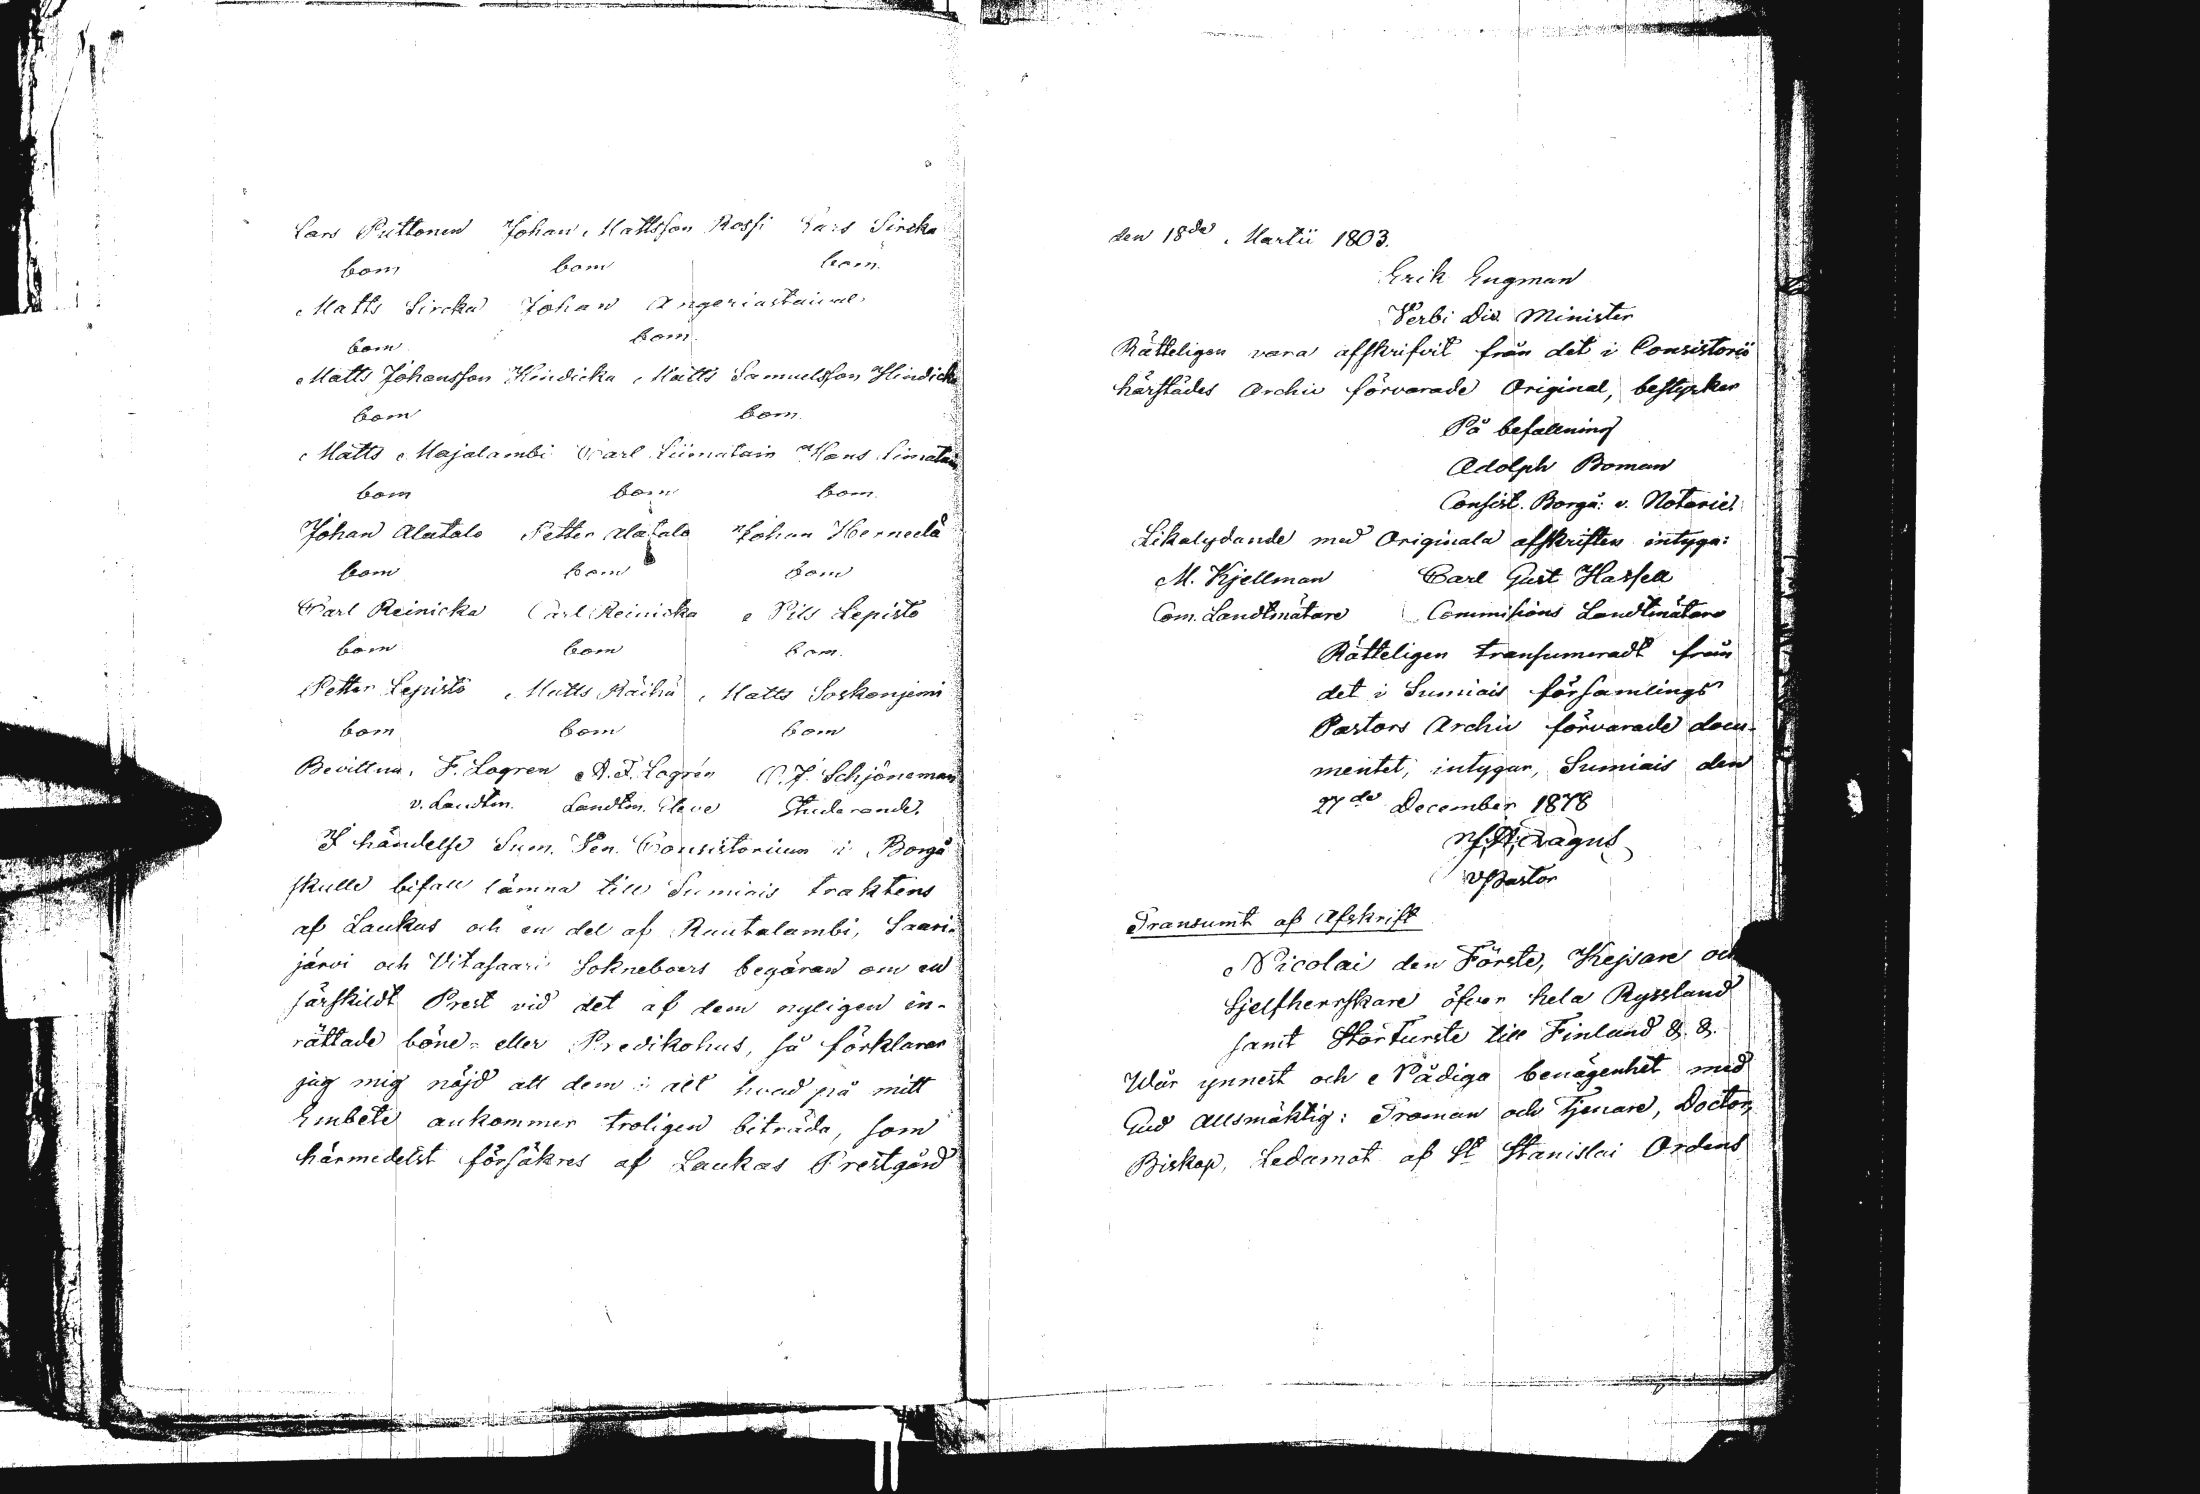 Lars Puttonen Johan Mattsson Rossi Lars Sircka
bom bom bom
Matts Sircka Johan Angeriastaival
bom bom
Matts Johansson Hindicka Matts Samuelsson Hindicka
bom bom
Matts Majalambi Carl Liimatain Hans Limatain
bom bom bom
Johan Alatalo Petter Alatalo Johan Herneelä
bom bom bom
Carl Reinicka Carl Reinicka Nils Lepistö
bom bom bom
Petter Lepistö Matts Räihä Matts Soskonjemi
bom bom bom
Bevittna, F. Logren A. F. Logrén Schjöneman
v. Landtm. Landtm. Eleve Studerande
I händelse Sum. Ven. Consistorium i Borgå
skulle bifall lämna till Sumiais traktens
af Laukas och en del af Rautalambi, Saari-
järvi och Vitasaari Sokneboers begäran om en
särskildt Prest vid det af dem nyligen in-
rättade böne- eller Predikohus, så förklarar
jag mig nöjd att dem i alt hvad på mitt
Embete ankommer troligen biträda, som
härmedelst försäkres af Laukas Prestgård
den 18de Martii 1803.
Erik Engman
Verbi Div. Minister
Rätteligen vara afskrifvit från det i Consistorii
härstädes Archiv förvarade Original, bestyrker
På befallning
Adolph Boman
Consist. Borgå: v. Notarie
Likalydande med Originala afskriften intyga:
M. Kjellman Carl Gust Hassell
Com. Landtmätare Commissions Landtmätare
Rätteligen transumeradt från
det i Sumiais församlings
Pastors Archiv förvarade docu-
mentet, intygar, Sumiais den
27de December 1878
vPastor
Transumt af Afskrift
Nicolai den Förste, Kejsare och
Sjelfherrskare öfver hela Ryssland
samt Storfurste till Finland &. &.
Wår ynnest och Nådiga benägenhet med
Gud Allsmäktig: Troman och Tjenare, Doctor,
Biskop, Ledamot af St Stanislai Ordens